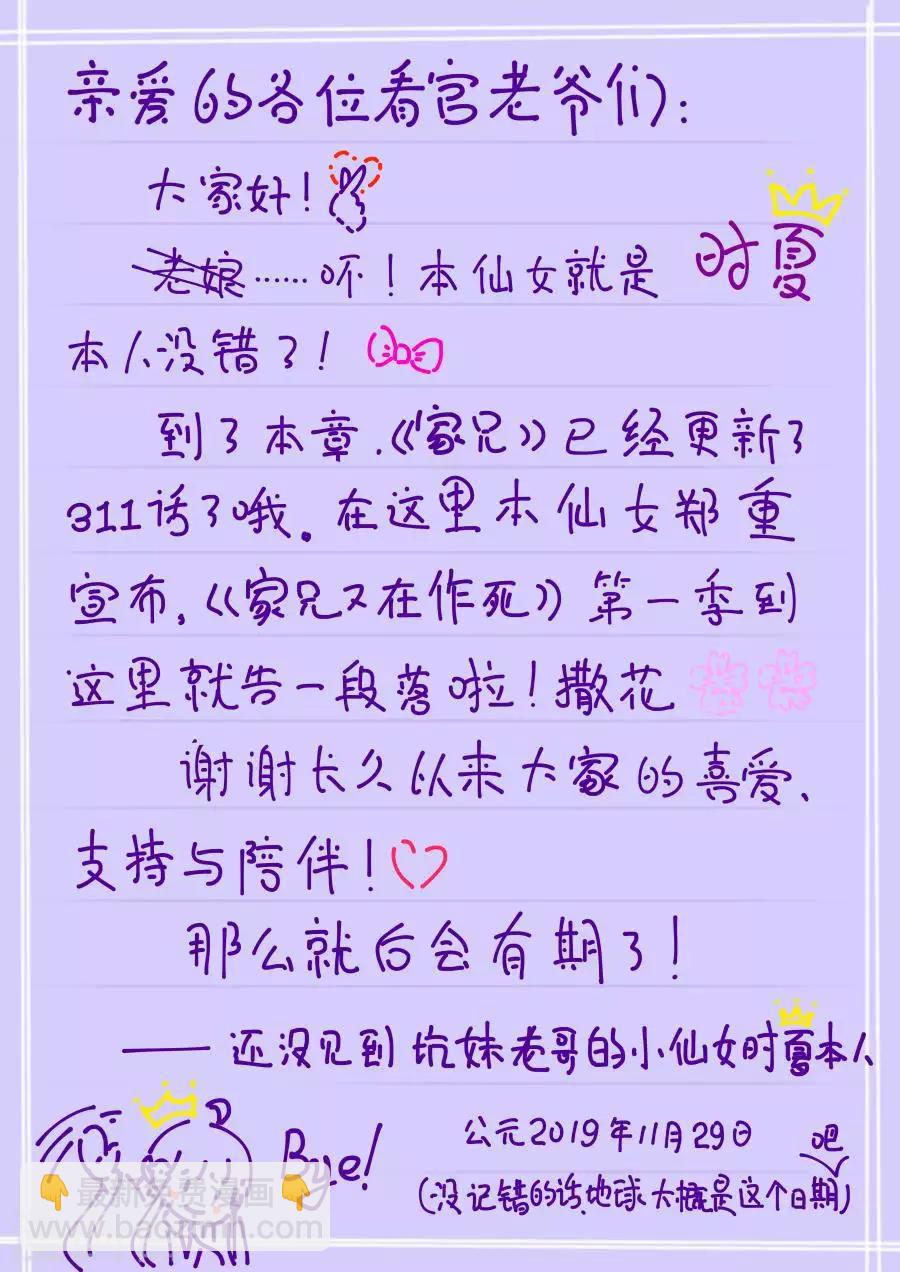 亲爱的各位看官老爷们：
大家好！
老娘……呸！本仙女就是 时夏
本人没错了！
到了本章，《家兄》已经更新了
311话了哦。在这里本仙女郑重
宣布，《家兄又在作死》第一季到
这里就告一段落啦！撒花
谢谢长久以来大家的喜爱、
支持与陪伴！
那么就后会有期了！
——还没见到坑妹老哥的小仙女时夏本人
Bye!
公元2019年11月29日
吧
（没记错的话，地球大概是这个日期）
👇最新免费漫画👇
www.baozimh.com